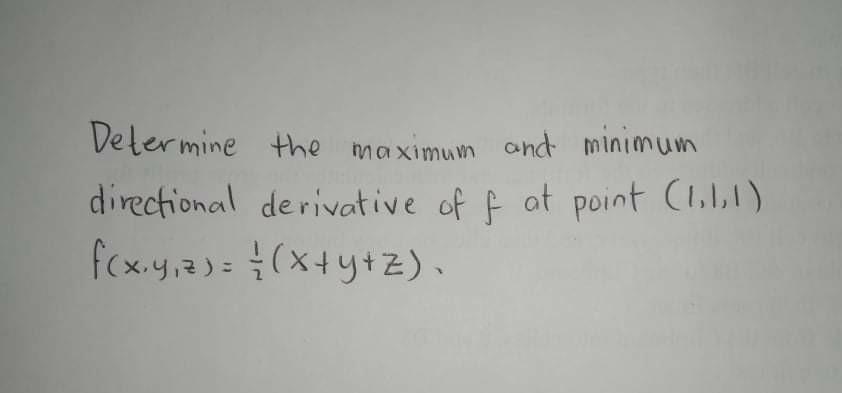 Determine the maximum and minimum
directional derivative of f at point (1,1,1)
f(x,y,z) = 1/2 (x+y+z).